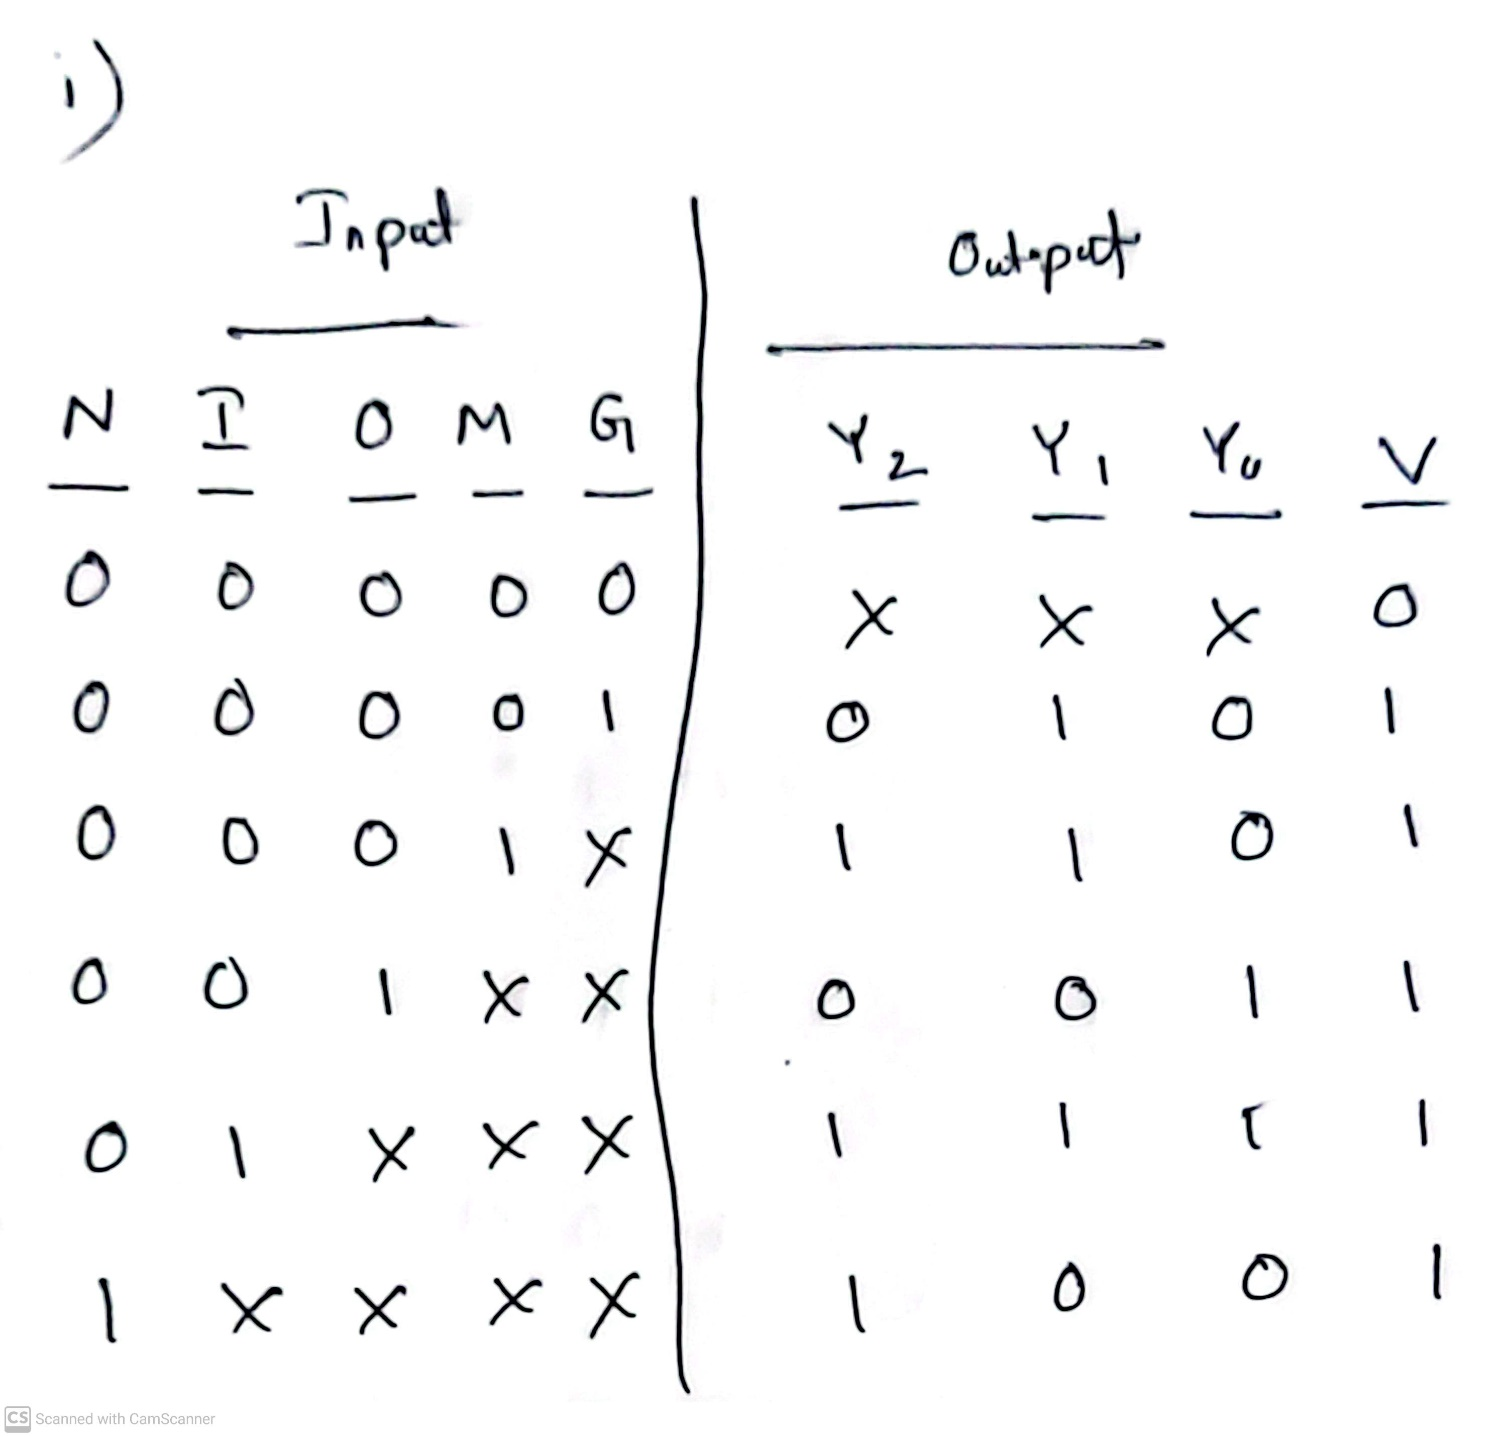 i)
Input Output
N I O M G Y2 Y1 Y0 V
0 0 0 0 0 X X X 0
0 0 0 0 1 0 1 0 1
0 0 0 1 X 1 1 0 1
0 0 1 X X 0 0 1 1
0 1 X X X 1 1 1 1
1 X X X X 1 0 0 1
CS Scanned with CamScanner